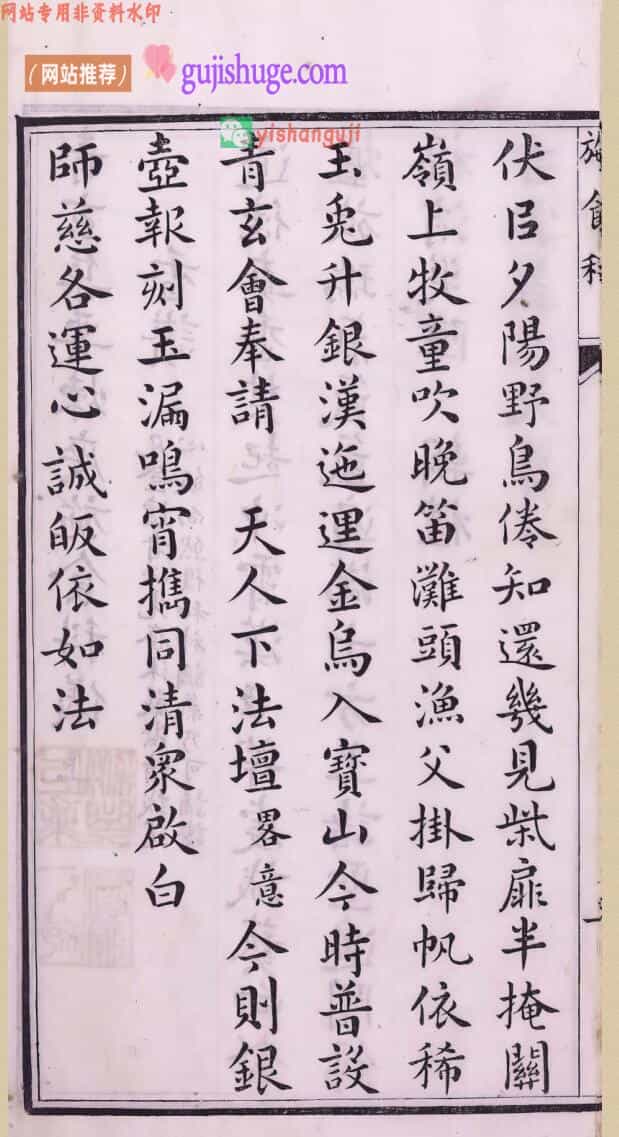 网站专用非资料水印
（网站推荐） gujishuge.com
yishanguji
施食科
伏㠯夕陽野鳥倦知還幾見柴扉半掩關
嶺上牧童吹晚笛灘頭漁父掛歸帆依稀
玉兎升銀漢迤邐金烏入寶山今時普設
青玄會奉請　天人下法壇畧意今則銀
壺報刻玉漏鳴宵擕同清衆啟白
師慈各運心誠皈依如法